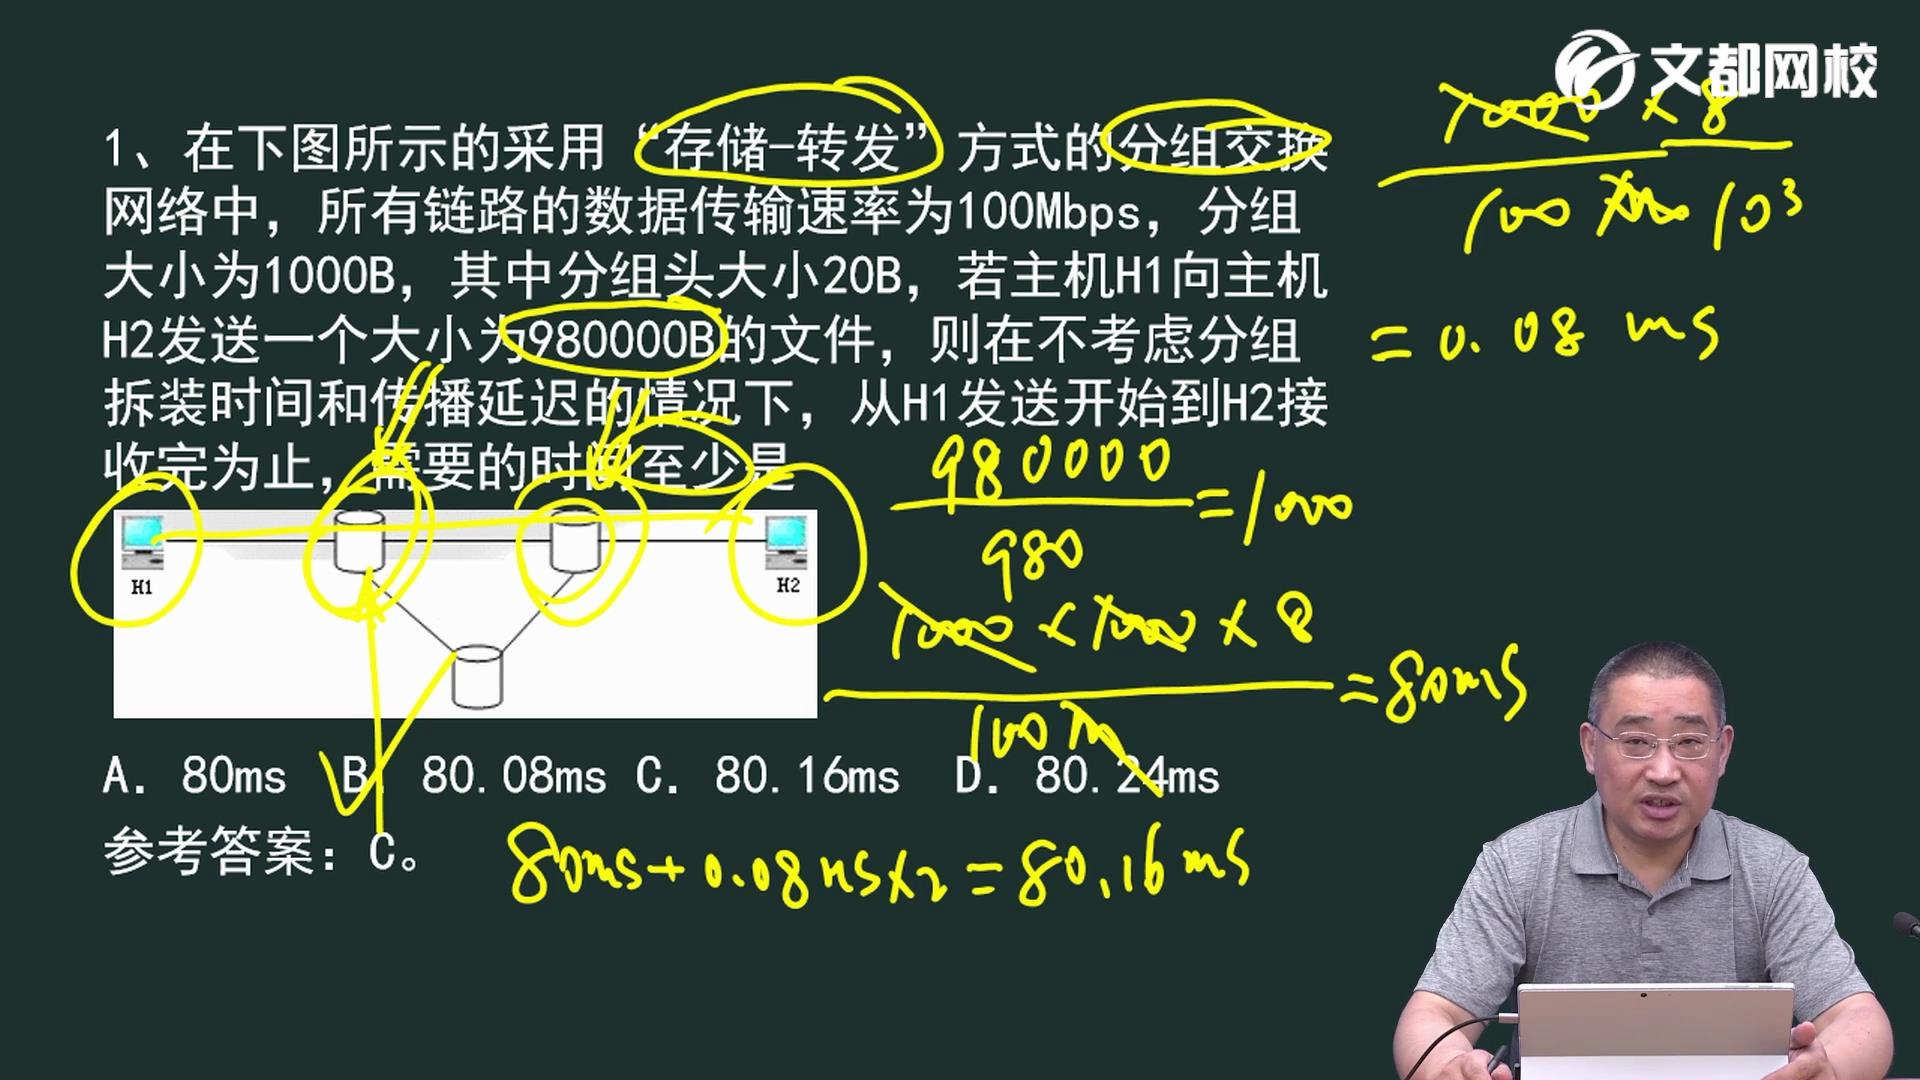 文都网校
1、在下图所示的采用“存储-转发”方式的分组交换
网络中，所有链路的数据传输速率为100Mbps，分组
大小为1000B，其中分组头大小20B，若主机H1向主机
H2发送一个大小为980000B的文件，则在不考虑分组
拆装时间和传播延迟的情况下，从H1发送开始到H2接
收完为止，需要的时间至少是
1000 × 8
100 10³
= 0.08 ms
980000
980
=1000
1000 × 1000 × 8
100 m
=80ms
H1
H2
A. 80ms B. 80.08ms C. 80.16ms D. 80.24ms
参考答案：C。
80ms+0.08ms×2=80.16ms